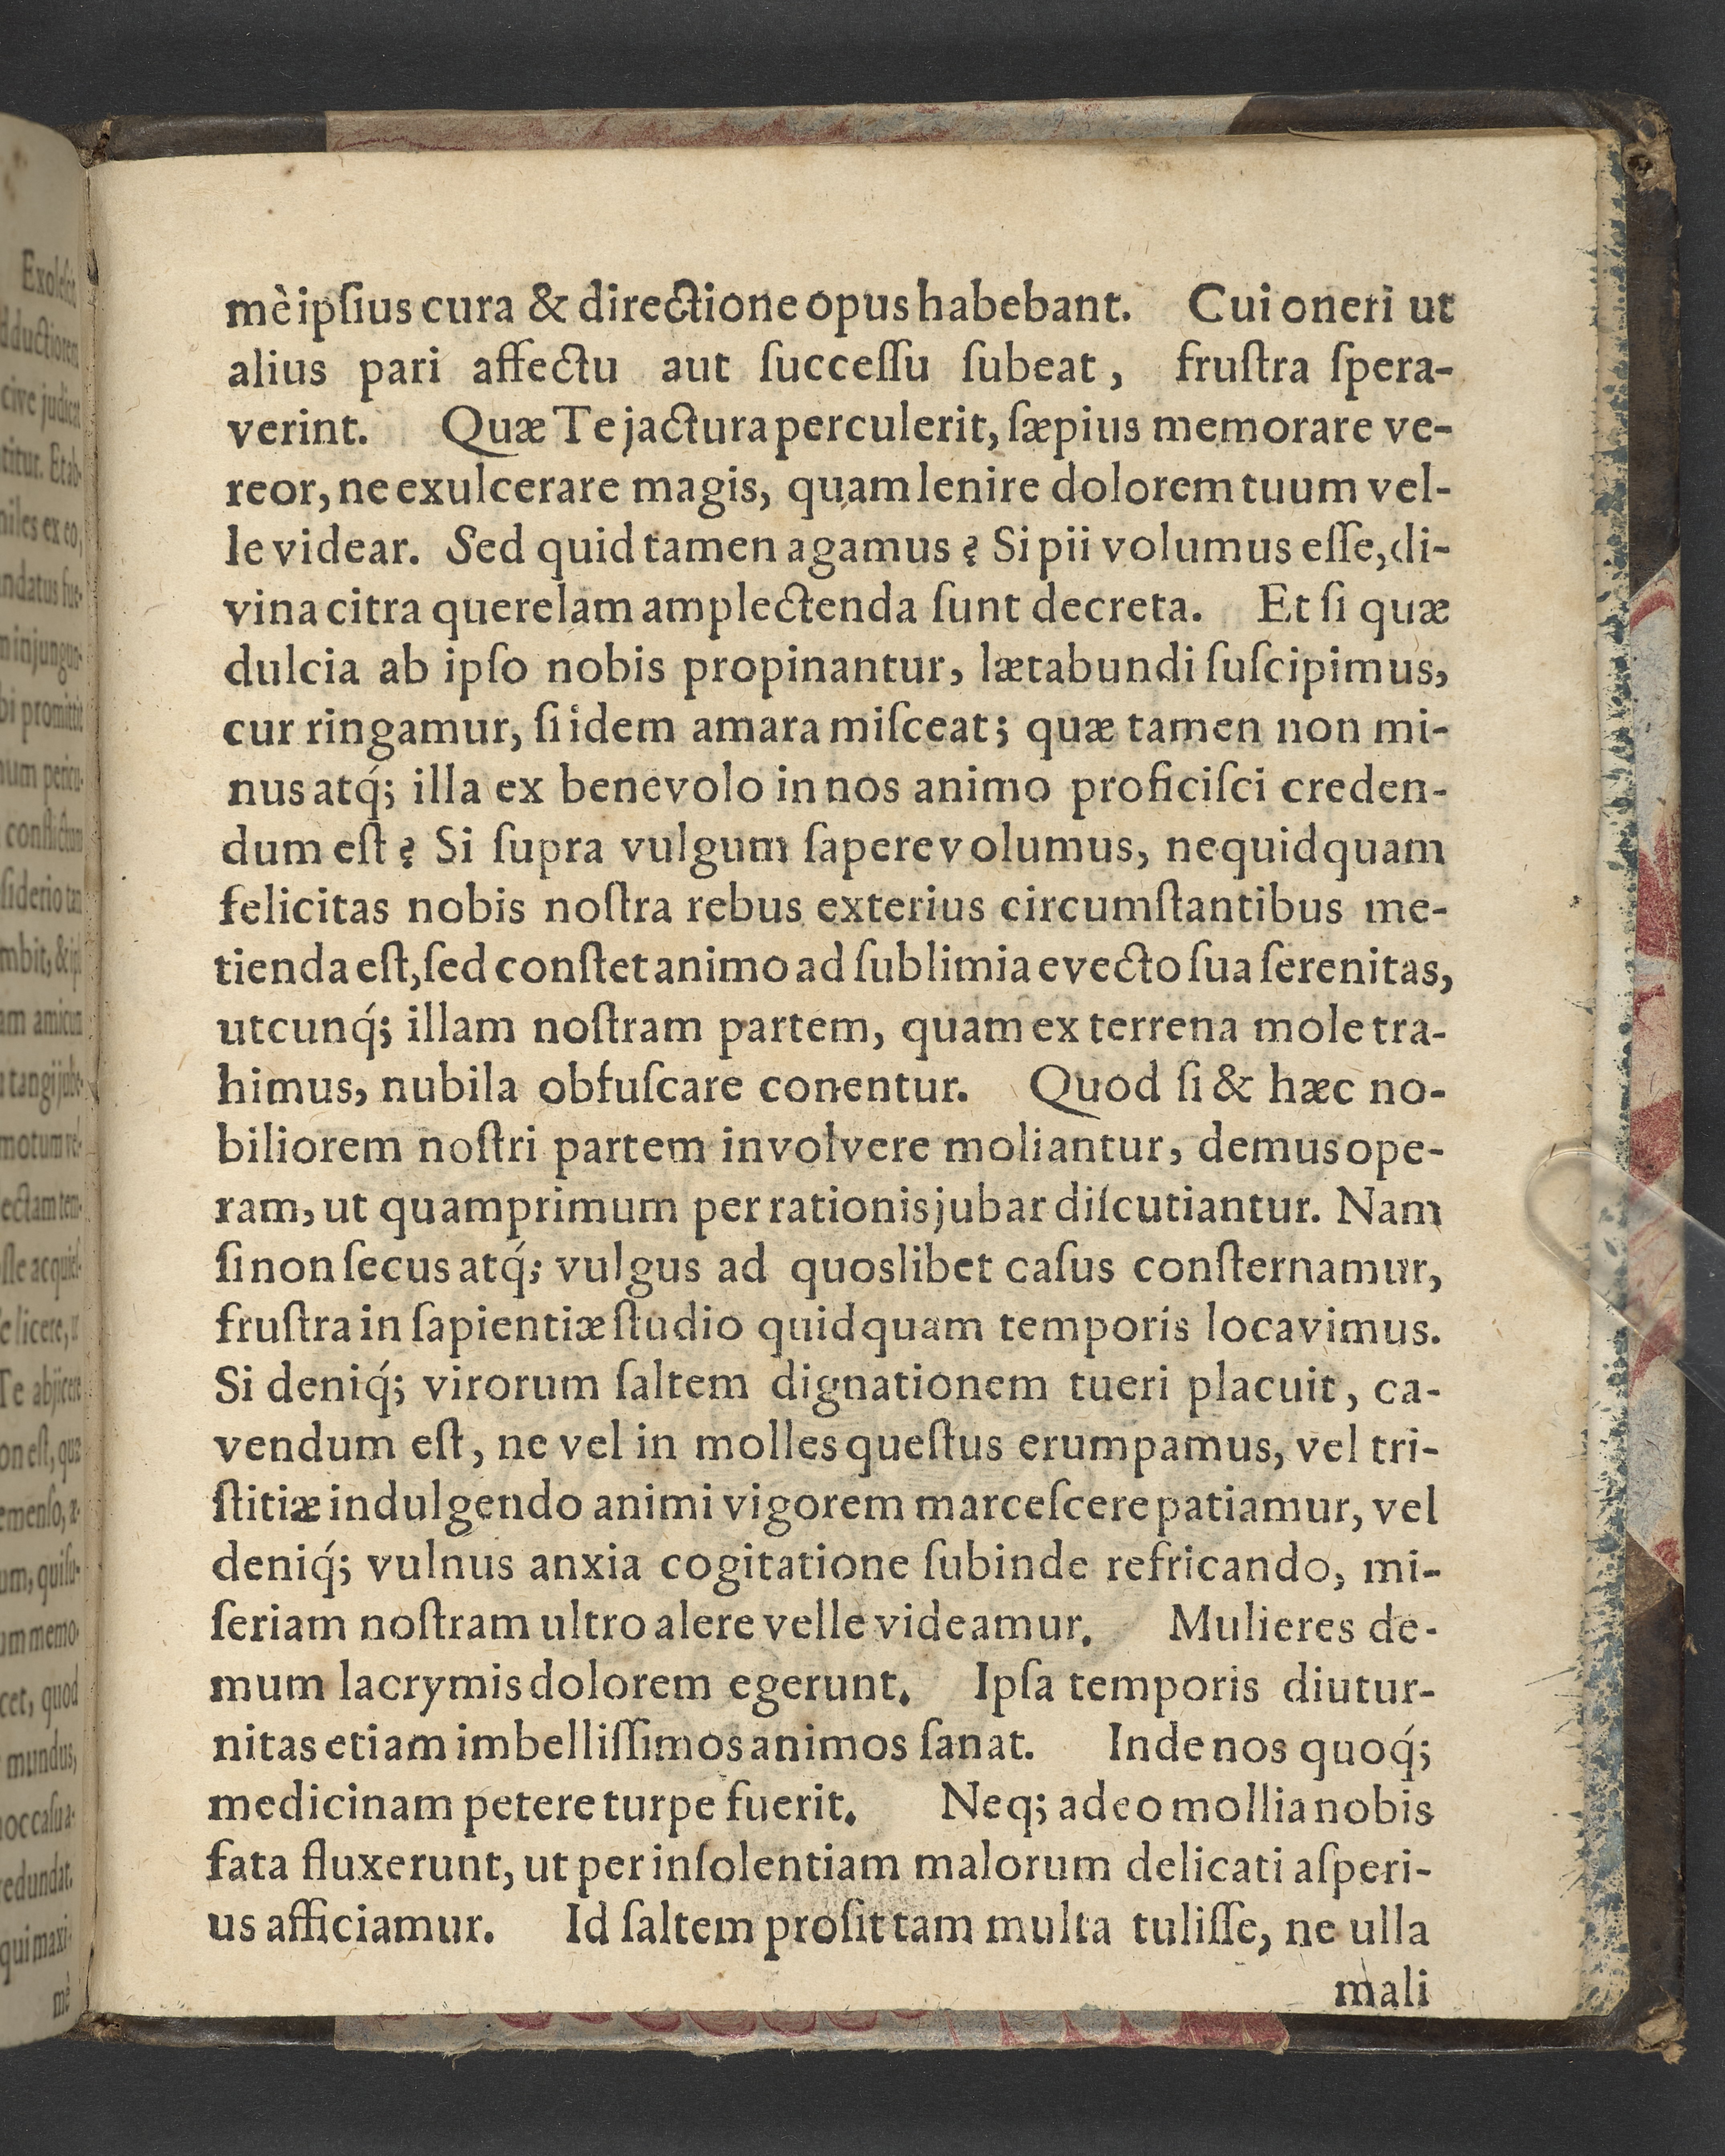 mè ipſius cura & directione opus habebant. Cui oneri ut
alius pari affectu aut ſucceſſu ſubeat, fruſtra ſpera-
verint. Quæ Te jactura perculerit, ſæpius memorare ve-
reor, ne exulcerare magis, quam lenire dolorem tuum vel-
le videar. Sed quid tamen agamus? Si pii volumus eſſe, di-
vina citra querelam amplectenda ſunt decreta. Et ſi quæ
dulcia ab ipſo nobis propinantur, lætabundi ſuſcipimus,
cur ringamur, ſi idem amara miſceat; quæ tamen non mi-
nus atq́; illa ex benevolo in nos animo proficiſci creden-
dum eſt? Si ſupra vulgum ſapere volumus, nequidquam
felicitas nobis noſtra rebus exterius circumſtantibus me-
tienda eſt, ſed conſtet animo ad ſublimia evecto ſua ſerenitas,
utcunq́; illam noſtram partem, quam ex terrena mole tra-
himus, nubila obfuſcare conentur. Quod ſi & hæc no-
biliorem noſtri partem involvere moliantur, demus ope-
ram, ut quamprimum per rationis jubar diſcutiantur. Nam
ſi non ſecus atq́; vulgus ad quoslibet caſus conſternamur,
fruſtra in ſapientiæ ſtudio quidquam temporis locavimus.
Si deniq́; virorum ſaltem dignationem tueri placuit, ca-
vendum eſt, ne vel in molles queſtus erumpamus, vel tri-
ſtitiæ indulgendo animi vigorem marceſcere patiamur, vel
deniq́; vulnus anxia cogitatione ſubinde refricando, mi-
ſeriam noſtram ultro alere velle videamur. Mulieres de-
mum lacrymis dolorem egerunt. Ipſa temporis diutur-
nitas etiam imbelliſſimos animos ſanat. Inde nos quoq́;
medicinam petere turpe fuerit. Neq; adeo mollia nobis
fata fluxerunt, ut per inſolentiam malorum delicati aſperi-
us afficiamur. Id ſaltem proſit tam multa tuliſſe, ne ulla
mali